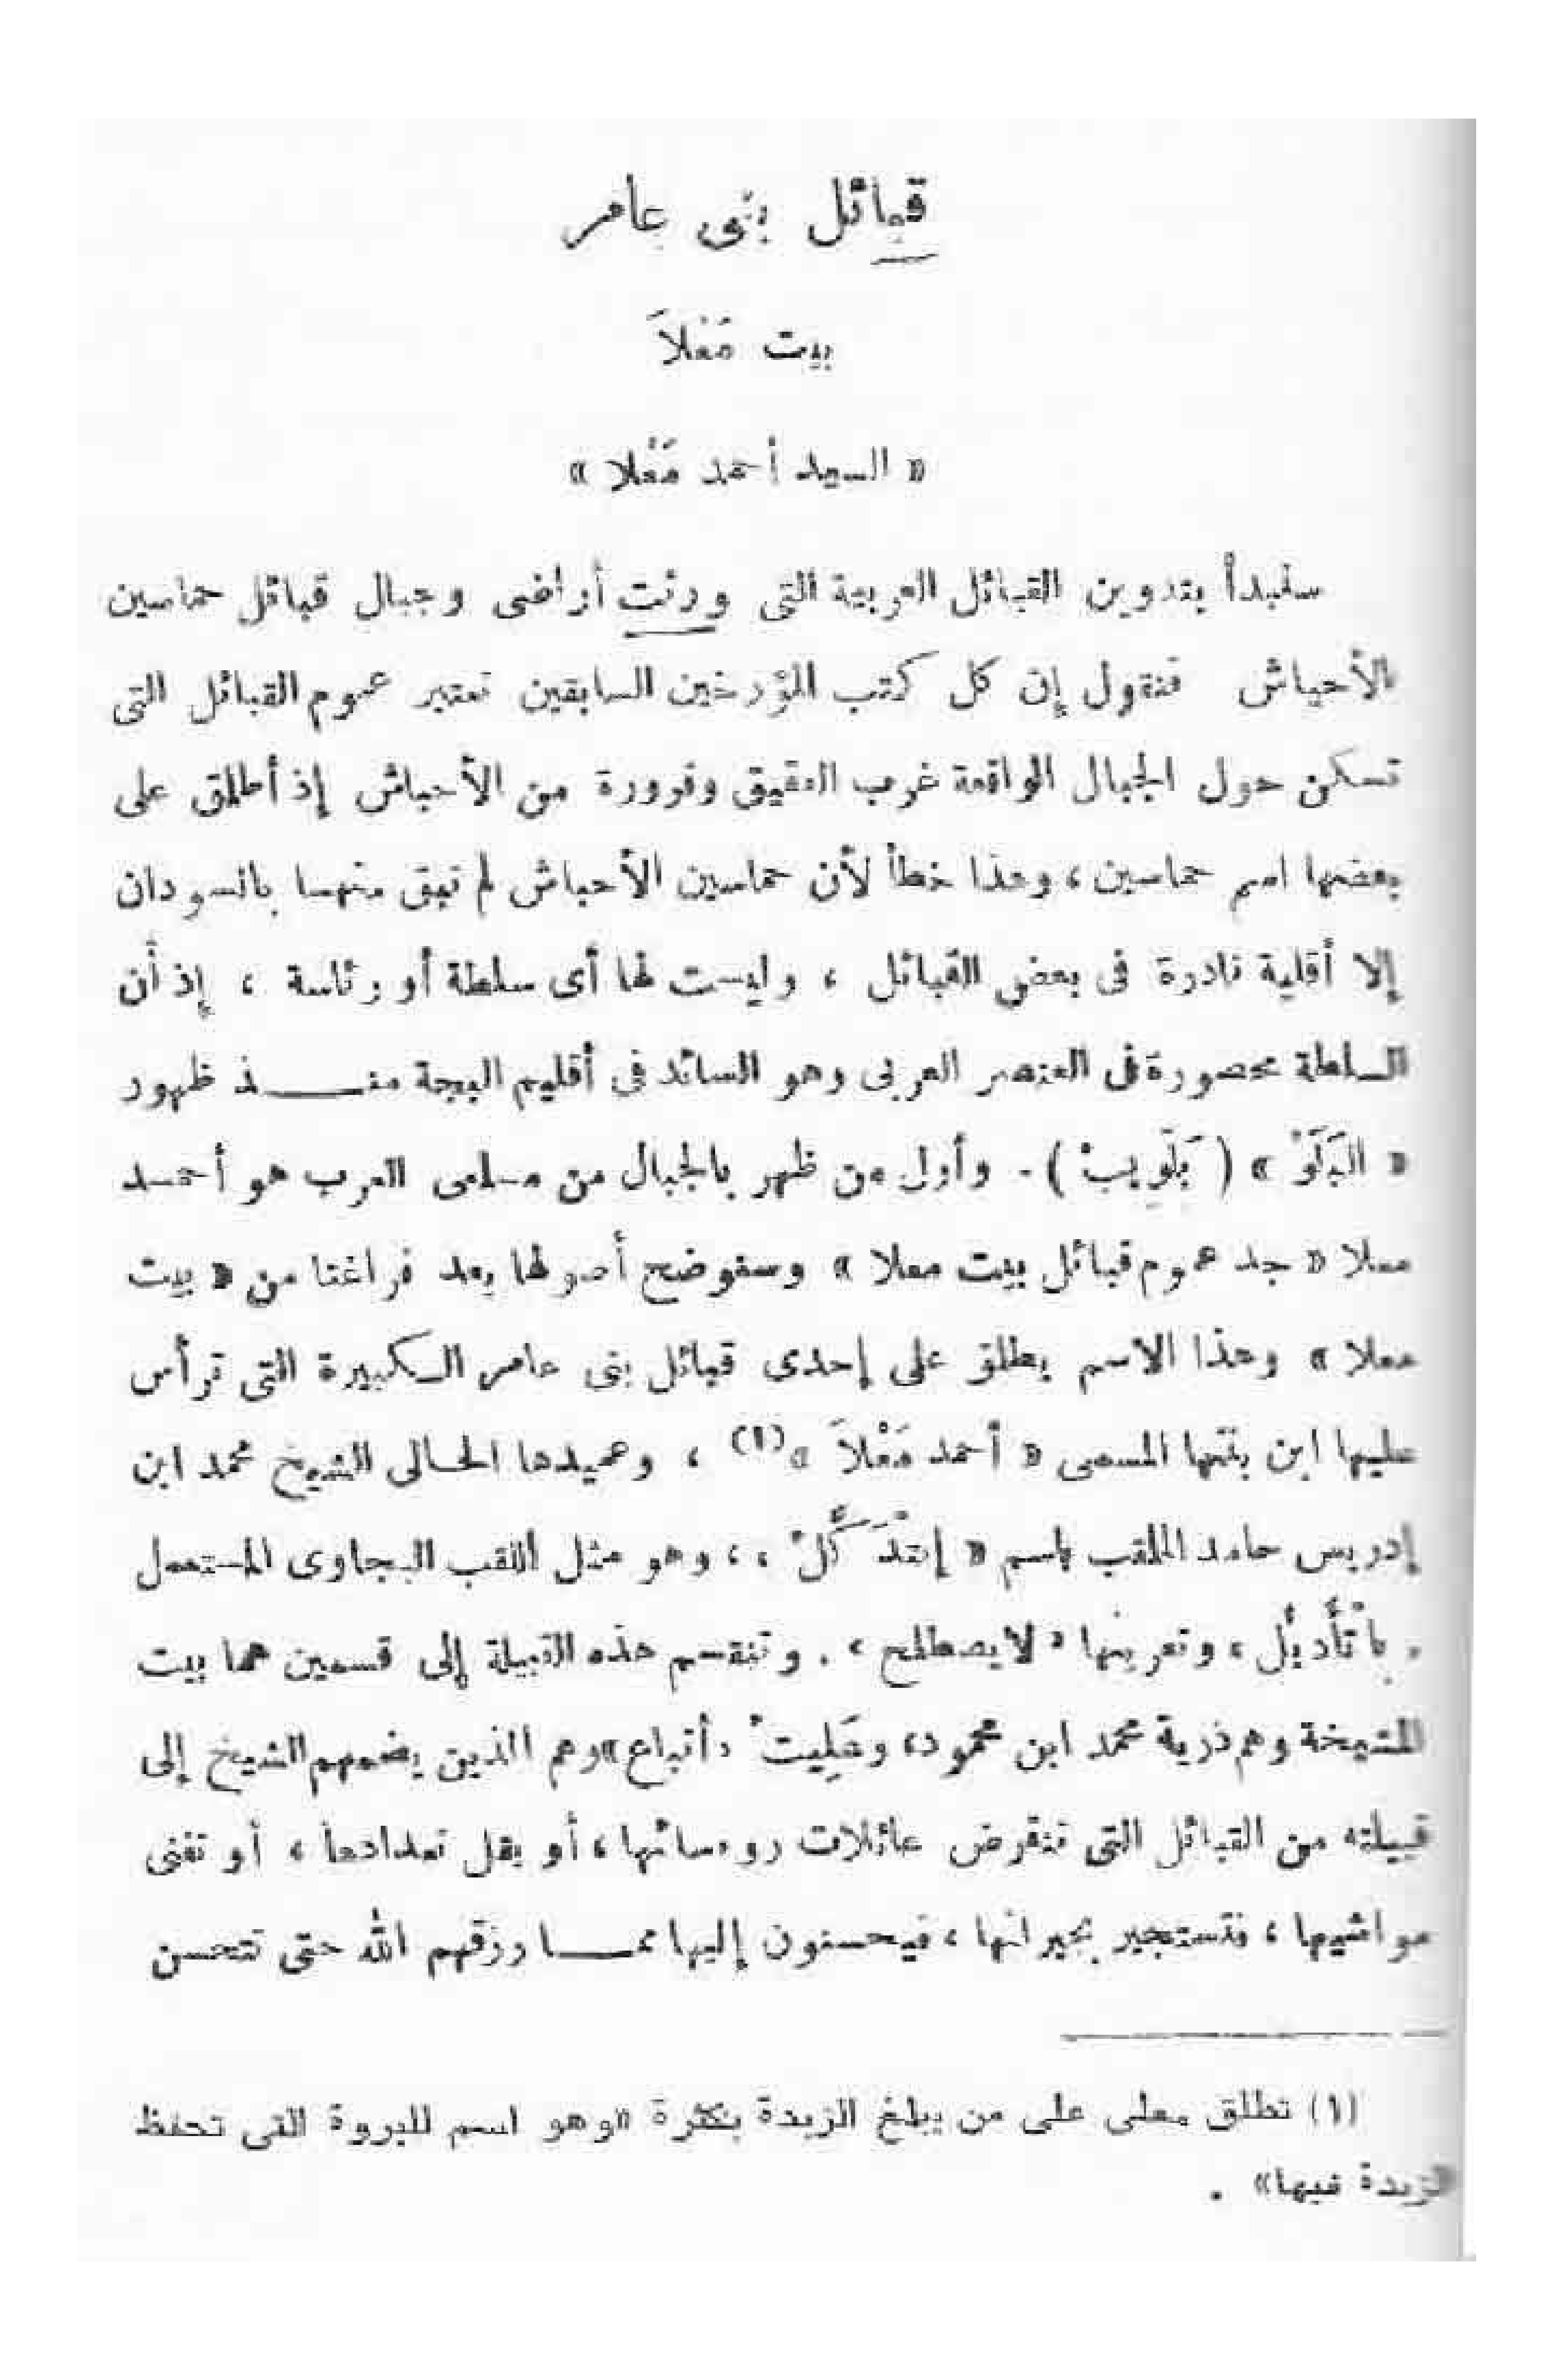 قبائل بنى عامر
بيت مَعْلاَ
« السيد أحمد مَعْلا »
سنبدأ بتدوين القبائل العربية التى ورثت أراضى وجبال قبائل حماسين
الأحباش فنقول إن كل كتب المؤرخين السابقين تعتبر عموم القبائل التى
تسكن حول الجبال الواقعة غرب العقيق وقرورة من الأحباش إذ أطلق على
بعضها اسم حماسين ، وهذا خطأ لأن حماسين الأحباش لم تبق منهسا بالسودان
إلا أقلية نادرة فى بعض القبائل ، وليست لها أى سلطة أو رئاسة ، إذ أن
السلطة محصورة فى العنصر العربى وهو السائد فى أقليم البجة منـــذ ظهور
« البَلَوْ » ( بَلَّوِيبْ ) . وأول من ظهر بالجبال من مسلمى العرب هو أحمد
معلا « جد عموم قبائل بيت معلا » وسنوضح أصولها بعد فراغنا من « بيت
معلا » وهذا الاسم يطلق على إحدى قبائل بنى عامر الكبيرة التى ترأس
عليها ابن بنتها المسمى « أحمد مَعْلاَ »(١) ، وعميدها الحالى الشيخ محمد ابن
إدريس حامد الملقب باسم « ، وهو مثل اللقب البجاوى المستعمل
وتعريفها « لا يصطلح » . وتنقسم هذه القبيلة إلى قسمين هما بيت
المشيخة وهم ذرية محمد ابن محمود، وعَلِيتْ « أتباع» وهم الذين يضمهم الشيخ إلى
قبيلته من القبائل التى تنقرض عائلات روءسائها ، أو يقل تعدادها ، أو تفنى
مواشيها ، فتستجير بجيرانها ، فيحسنون إليها ممـــا رزقهم الله حتى تتحسن
(١) تطلق معلى على من يبلغ الزبدة بكثرة «وهو اسم للبروة التى تحفظ
الزبدة فيها» .